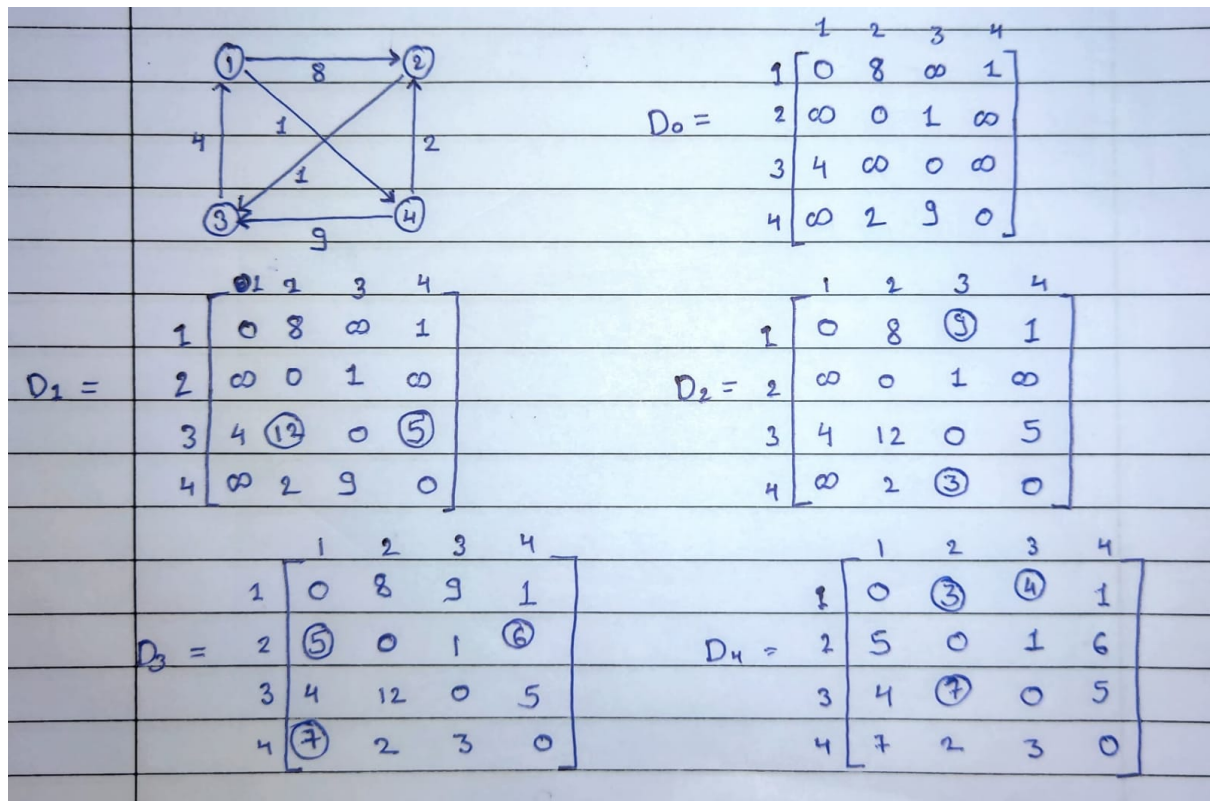 1 8 2
4 1 1 2
3 9 4
1 2 3 4
D0 =
1 0 8 ∞ 1
2 ∞ 0 1 ∞
3 4 ∞ 0 ∞
4 ∞ 2 9 0
1 2 3 4
D1 =
1 0 8 ∞ 1
2 ∞ 0 1 ∞
3 4 12 0 5
4 ∞ 2 9 0
1 2 3 4
D2 =
1 0 8 9 1
2 ∞ 0 1 ∞
3 4 12 0 5
4 ∞ 2 3 0
1 2 3 4
D3 =
1 0 8 9 1
2 5 0 1 6
3 4 12 0 5
4 7 2 3 0
1 2 3 4
D4 =
1 0 3 4 1
2 5 0 1 6
3 4 7 0 5
4 7 2 3 0